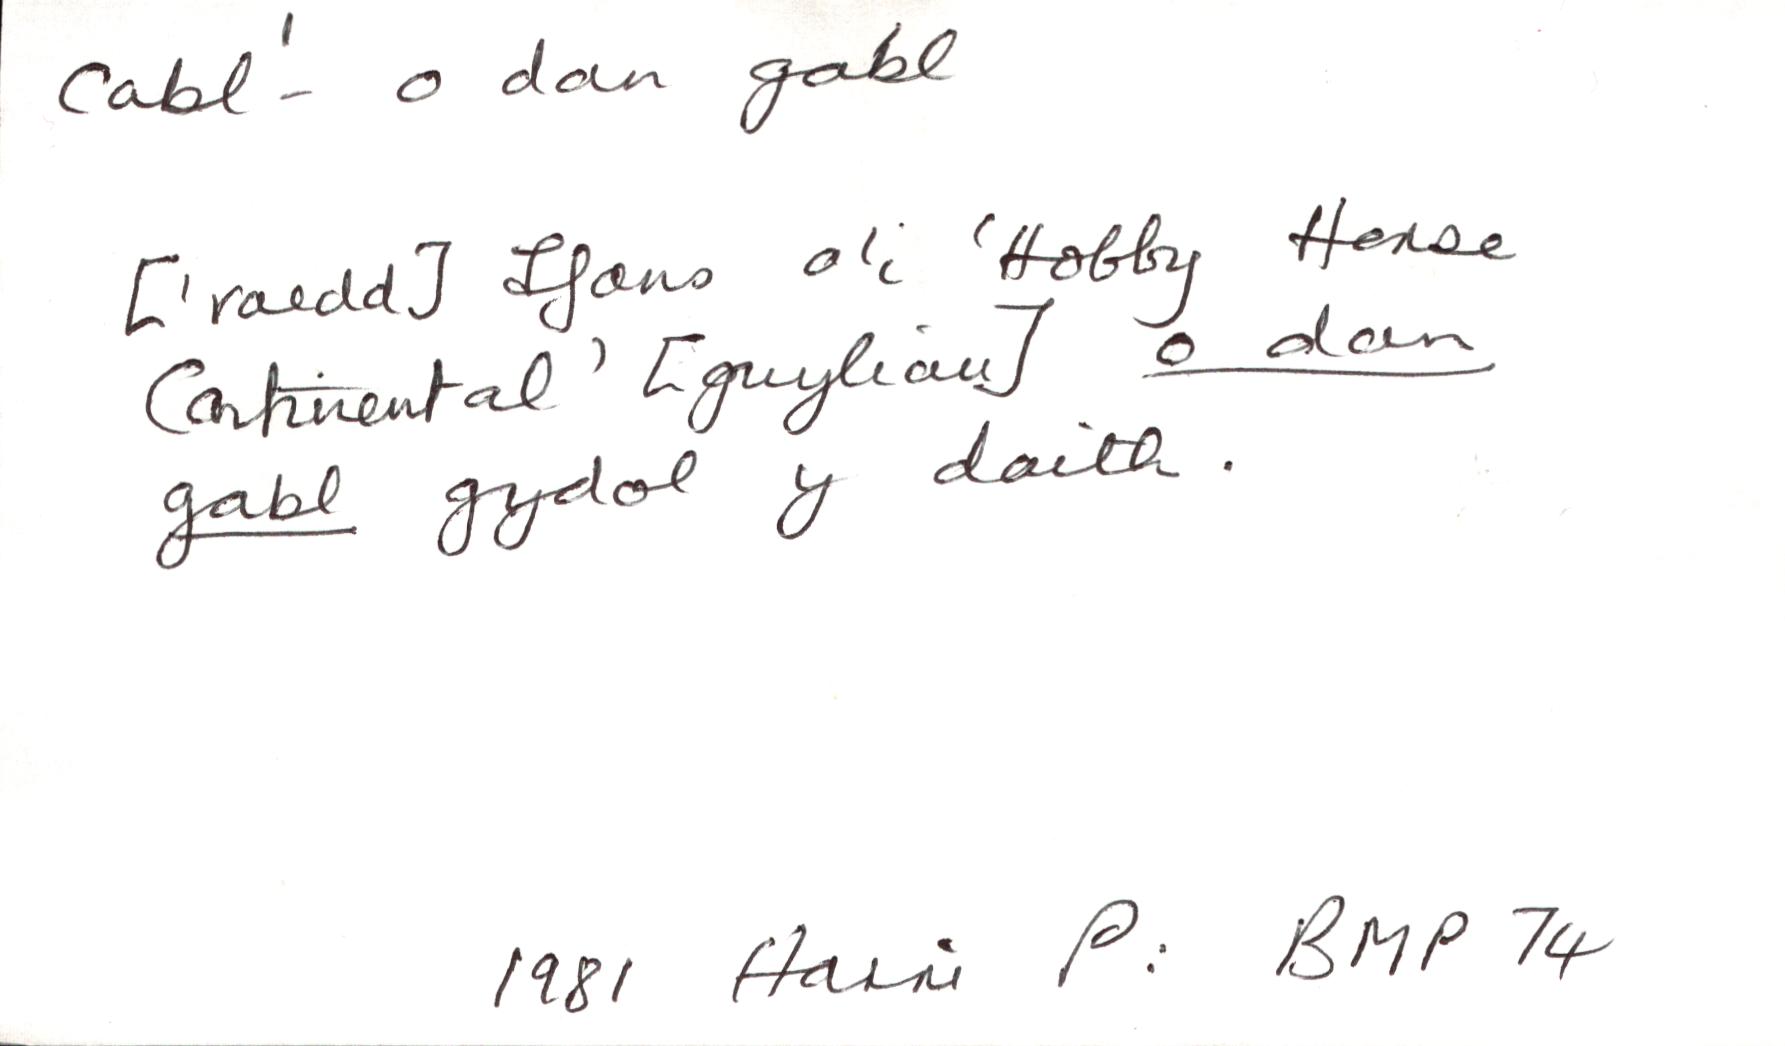 Cabl¹ - o dan gabl
['raedd] Ifans a'i 'Hobby Horse
Continental' [gwyliau] o dan
gabl gydol y daith.
1981 Harri P: BMP 74